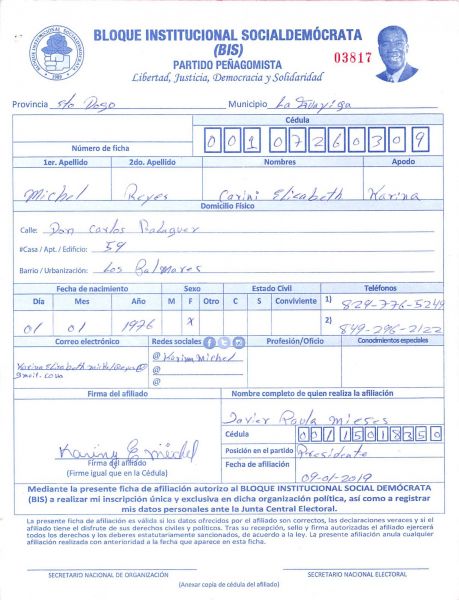 BLOQUE INSTITUCIONAL SOCIALDEMÓCRATA
(BIS)
PARTIDO PEÑAGOMISTA
Libertad, Justicia, Democracia y Solidaridad
03817
Provincia Sto Dgo Municipio
Cédula
Número de ficha 001 0726030 9
1er. Apellido 2do. Apellido Nombres Apodo
Michel Reyes Carini Elizabeth Karina
Domicilio Físico
Calle: Don Carlos Balaguer
#Casa / Apt. / Edificio: 59
Barrio / Urbanización: Los Palmares
Fecha de nacimiento Sexo Estado Civil Teléfonos
Día Mes Año M F Otro C S Conviviente 1) 829-776-5249
01 01 1976 X 2) 849-296-2122
Correo electrónico Redes sociales Profesión/Oficio Conocimientos especiales
Karina Elizabeth michel Reyes@
gmail.com
@ Karina Michel
@
@
Firma del afiliado Nombre completo de quien realiza la afiliación
Javier Paula Mieses
Cédula 00115018350
Karina E Michel
Firma del afiliado
(Firme igual que en la Cédula)
Posición en el partido Presidente
Fecha de afiliación 09-01-2019
Mediante la presente ficha de afiliación autorizo al BLOQUE INSTITUCIONAL SOCIAL DEMÓCRATA
(BIS) a realizar mi inscripción única y exclusiva en dicha organización política, así como a registrar
mis datos personales ante la Junta Central Electoral.
La presente ficha de afiliación es válida si los datos ofrecidos por el afiliado son correctos, las declaraciones veraces y si el
afiliado tiene el disfrute de sus derechos civiles y políticos. Tras su recepción, sello y firma autorizadas el afiliado ejercerá
todos los derechos y los deberes estatutariamente sancionados, de acuerdo a la ley. La presente afiliación anula cualquier
afiliación realizada con anterioridad a la fecha que aparece en esta ficha.
SECRETARIO NACIONAL DE ORGANIZACIÓN SECRETARIO NACIONAL ELECTORAL
(Anexar copia de cédula del afiliado)